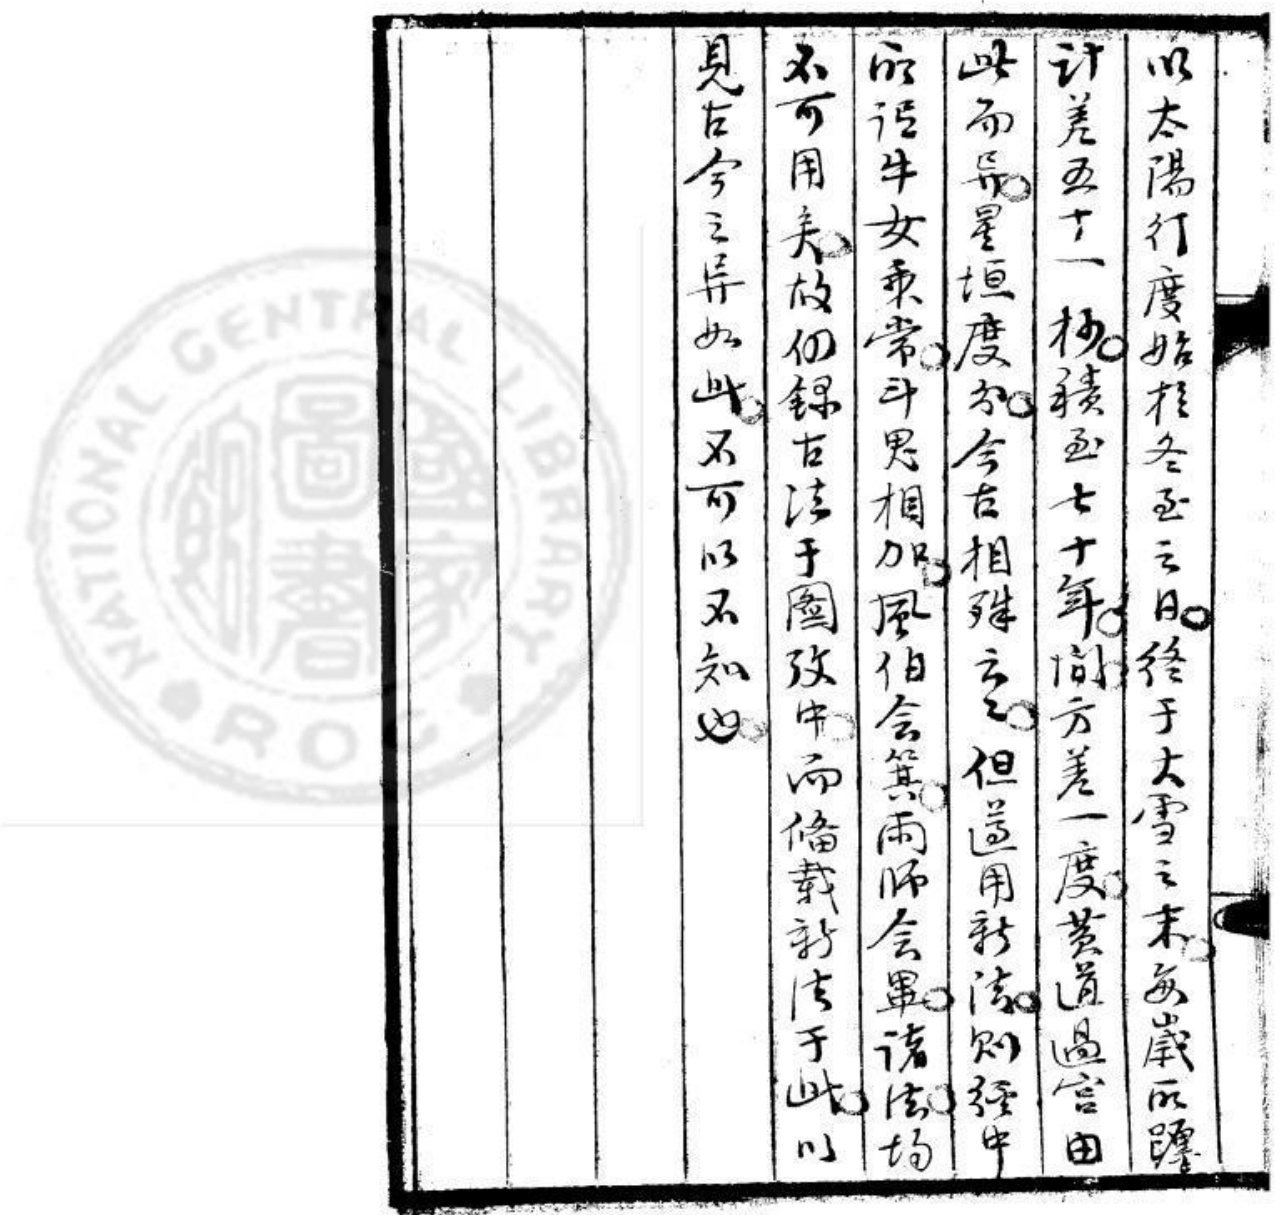 以太陽行度始於冬至之日終于大雪之末每歲所躔
計差五十一秒積至七十年間方差一度黃道過宮由
此而异星垣度分今古相殊之但遵用新法則經中
所謂牛女乘常斗鬼相加風伯会箕雨師会畢諸法均
不可用矣故仍錄古法于圖攷中而備載新法于此以
見古今之异如此不可以不知也
NATIONAL CENTRAL LIBRARY
R.O.C
國家圖書館